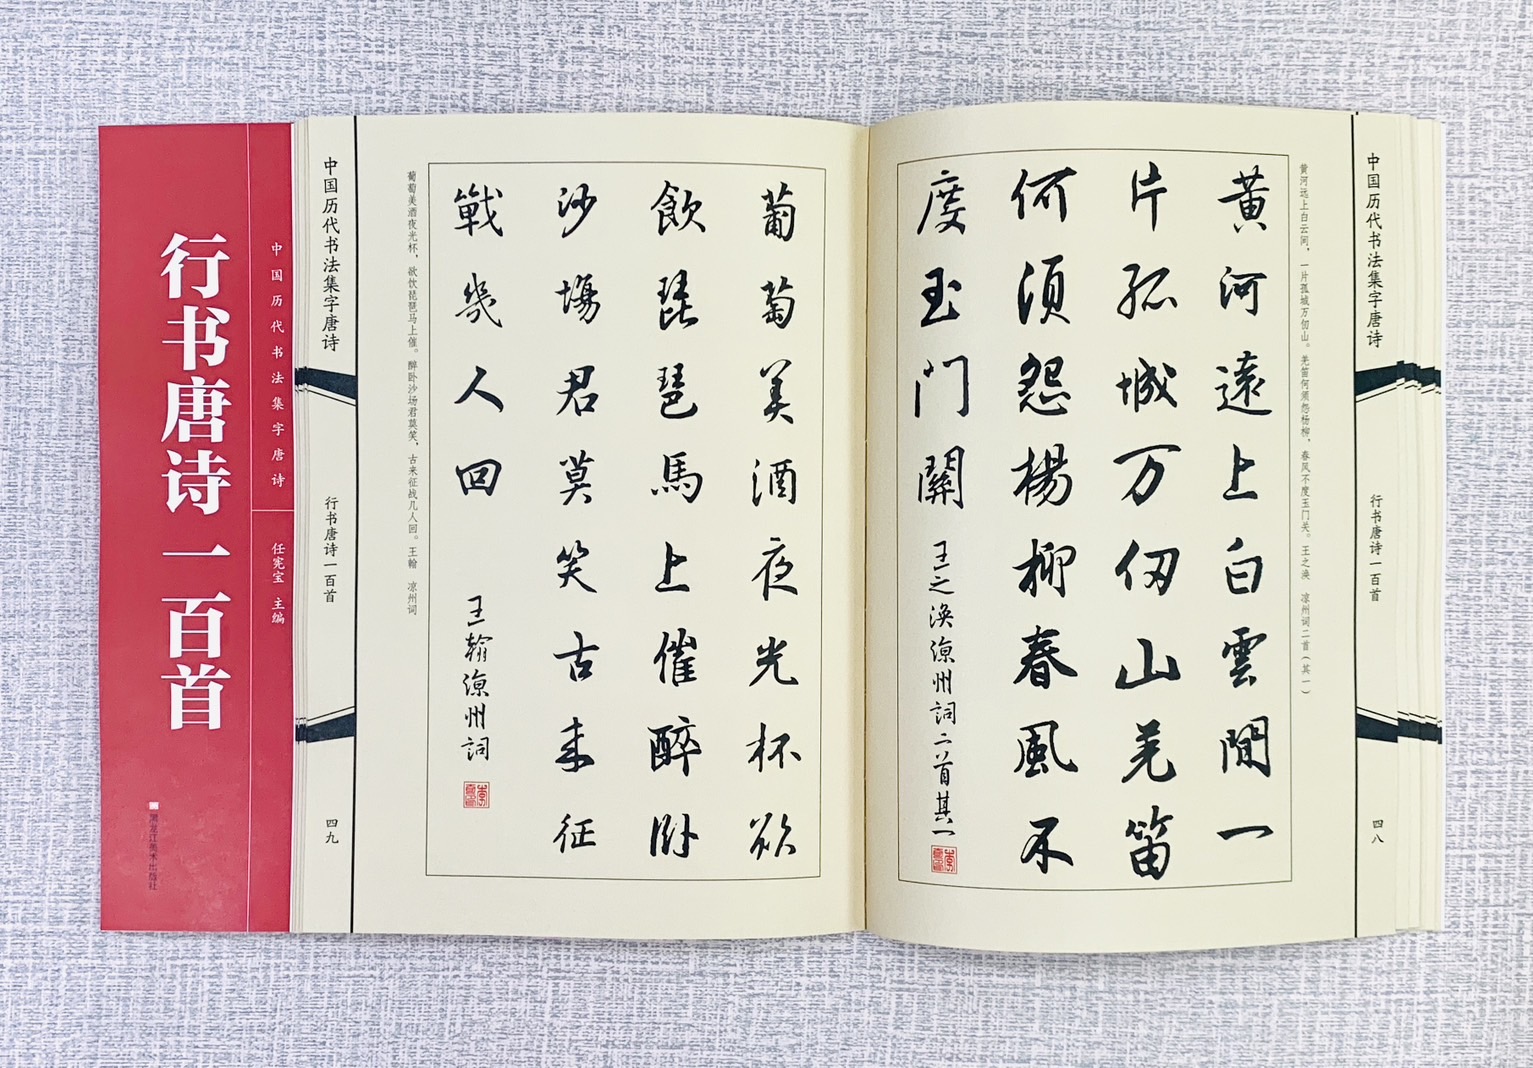 中国历代书法集字唐诗
行书唐诗一百首
四八
黄河远上白云间，一片孤城万仞山。羌笛何须怨杨柳，春风不度玉门关。王之涣 凉州词二首（其一）
黄河遠上白雲間一
片孤城万仞山羌笛
何須怨楊柳春風不
度玉門關
王之涣凉州詞二首其一
葡萄美酒夜光杯欲
飲琵琶馬上催醉卧
沙場君莫笑古来征
戰幾人回
王翰凉州詞
葡萄美酒夜光杯，欲饮琵琶马上催。醉卧沙场君莫笑，古来征战几人回。王翰 凉州词
中国历代书法集字唐诗
行书唐诗一百首
四九
中国历代书法集字唐诗
任宪宝 主编
行书唐诗一百首
黑龙江美术出版社